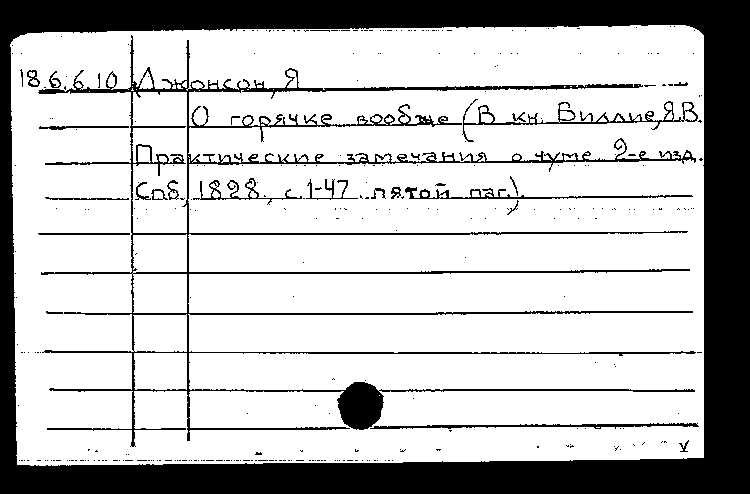 18.6.6.10 Джонсон, Я
О горячке вообще (В кн. Виллие, Я.В.
Практические замечания о чуме 2-е изд.
Спб, 1828, с. 1-47 пятой паг.).
v